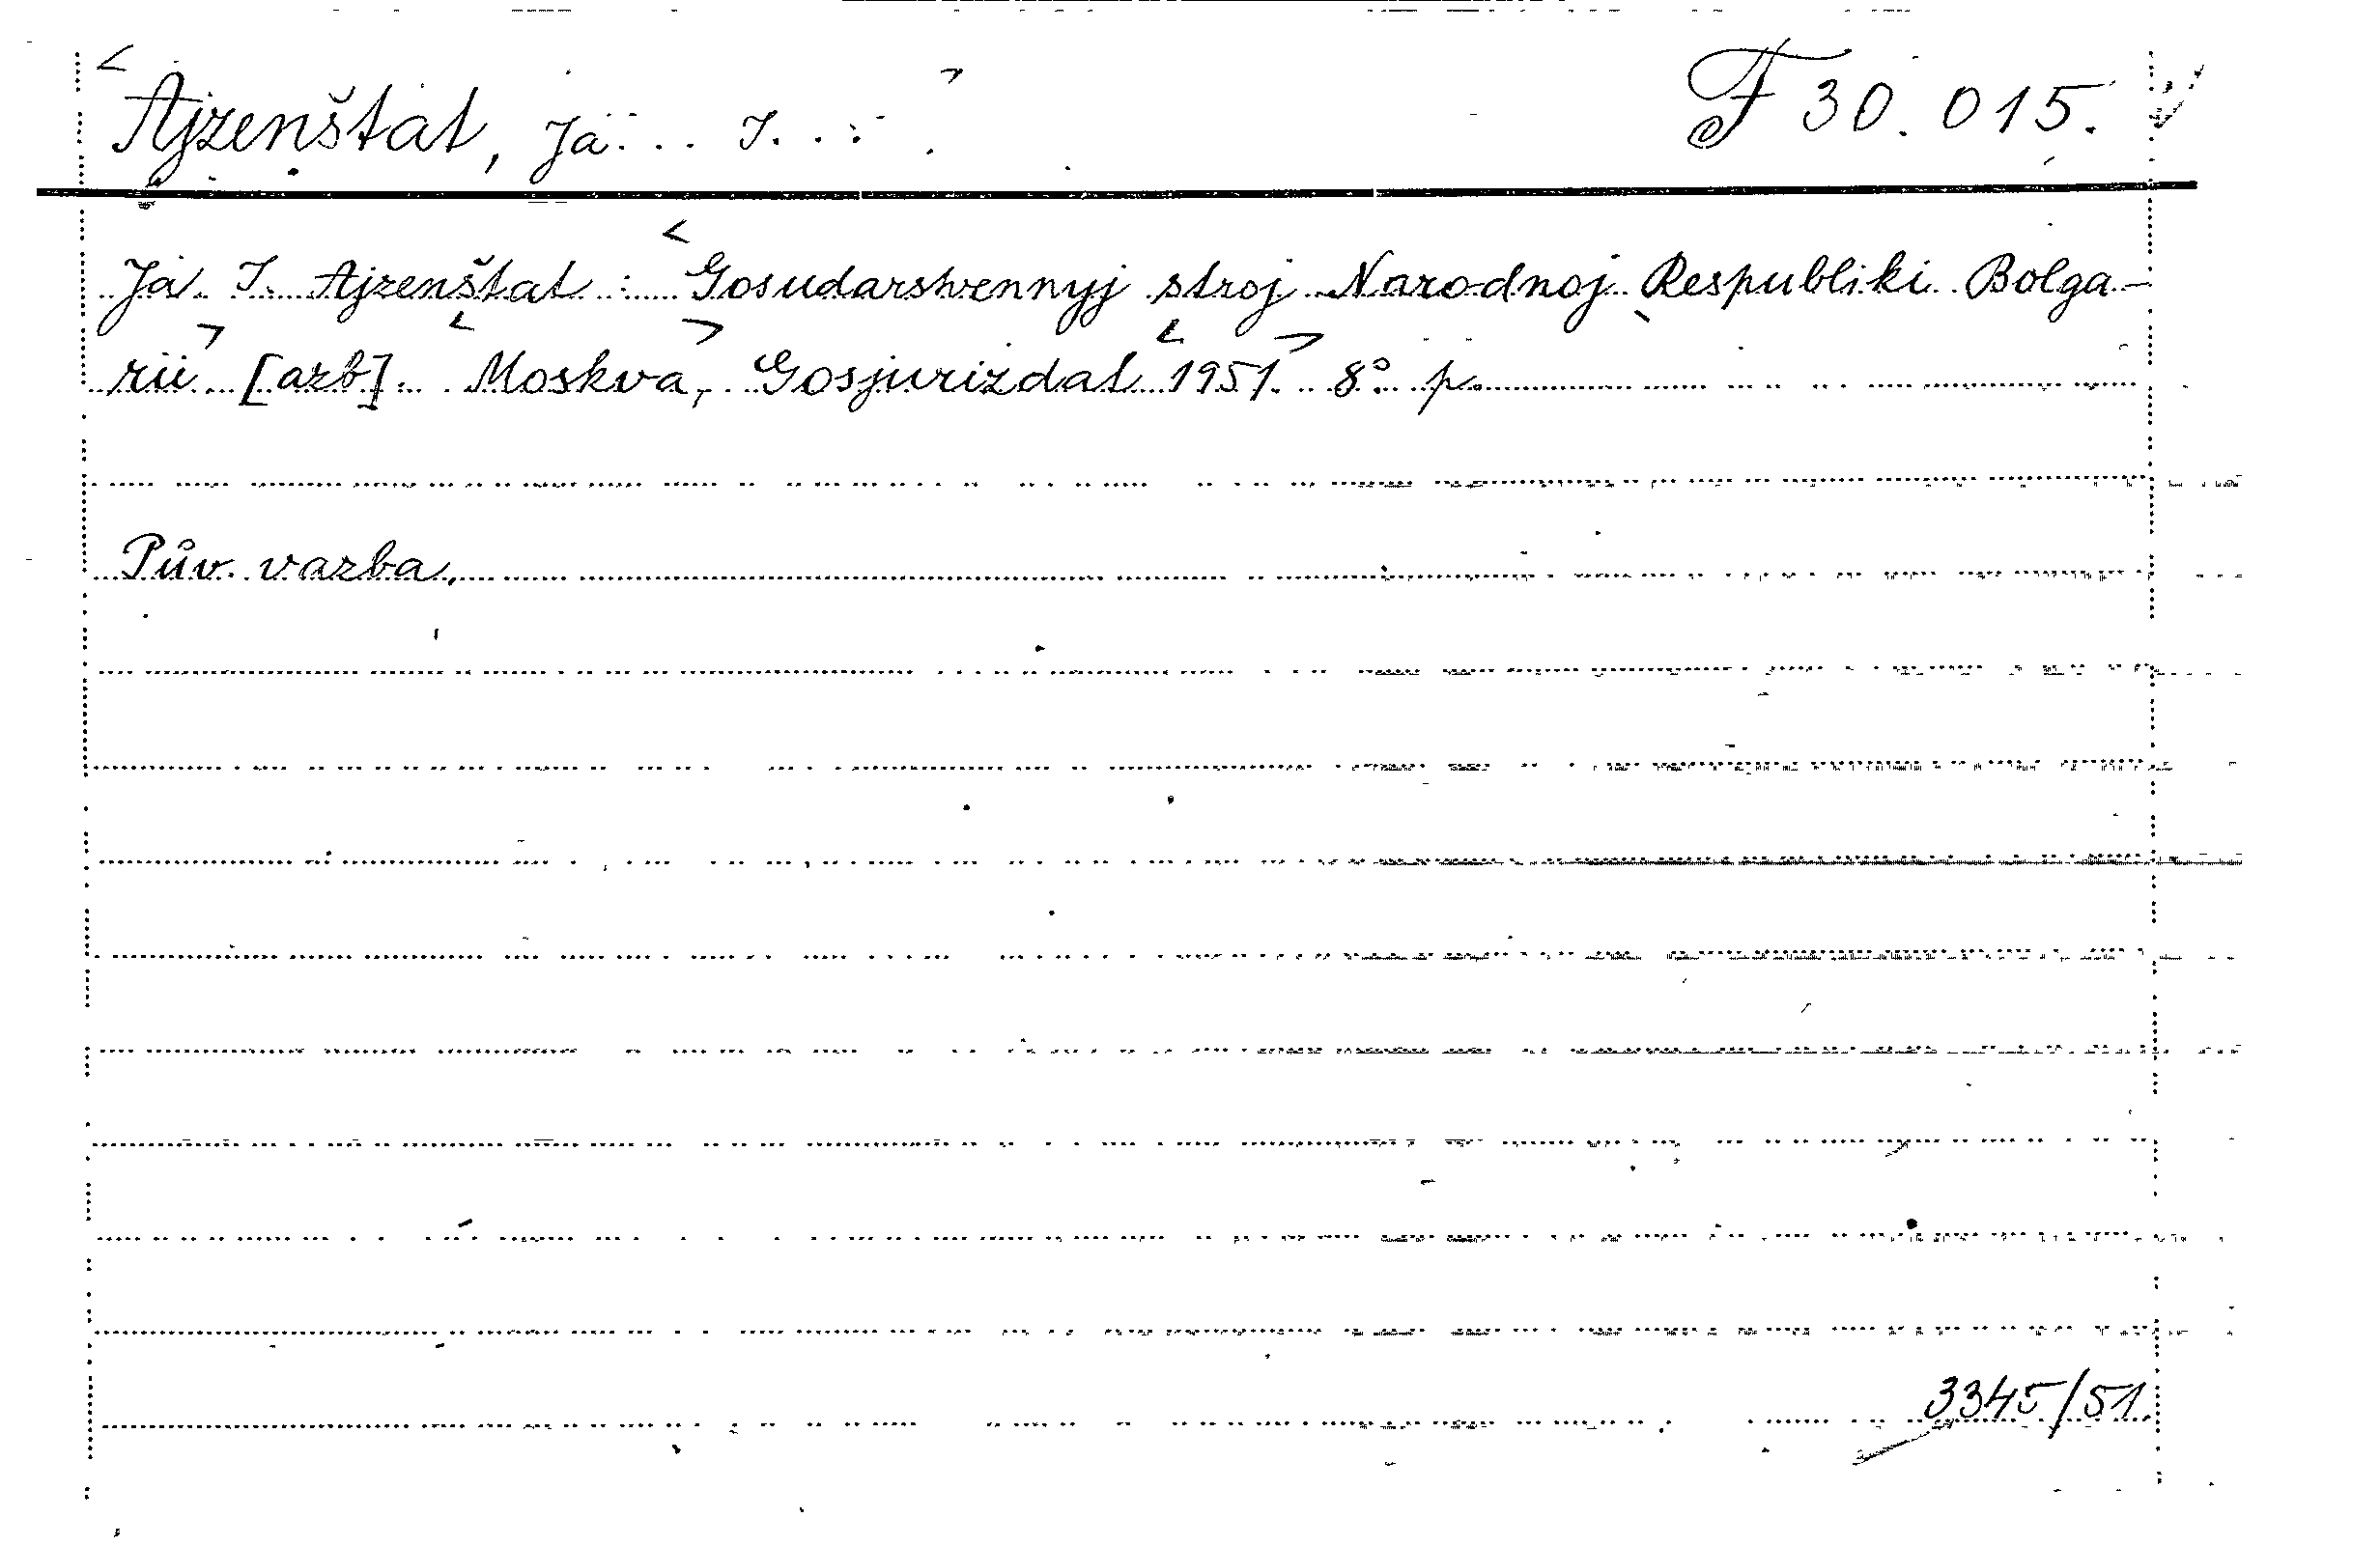 Ajzenštat, Ja... I... F 30.015.
Ja. I. Ajzenštat: Gosudarstvennyj stroj Narodnoj Respubliki Bolga-
rii [azb]. Moskva, Gosjurizdat 1951. 8° p.
Pův. vazba.
3345/51.